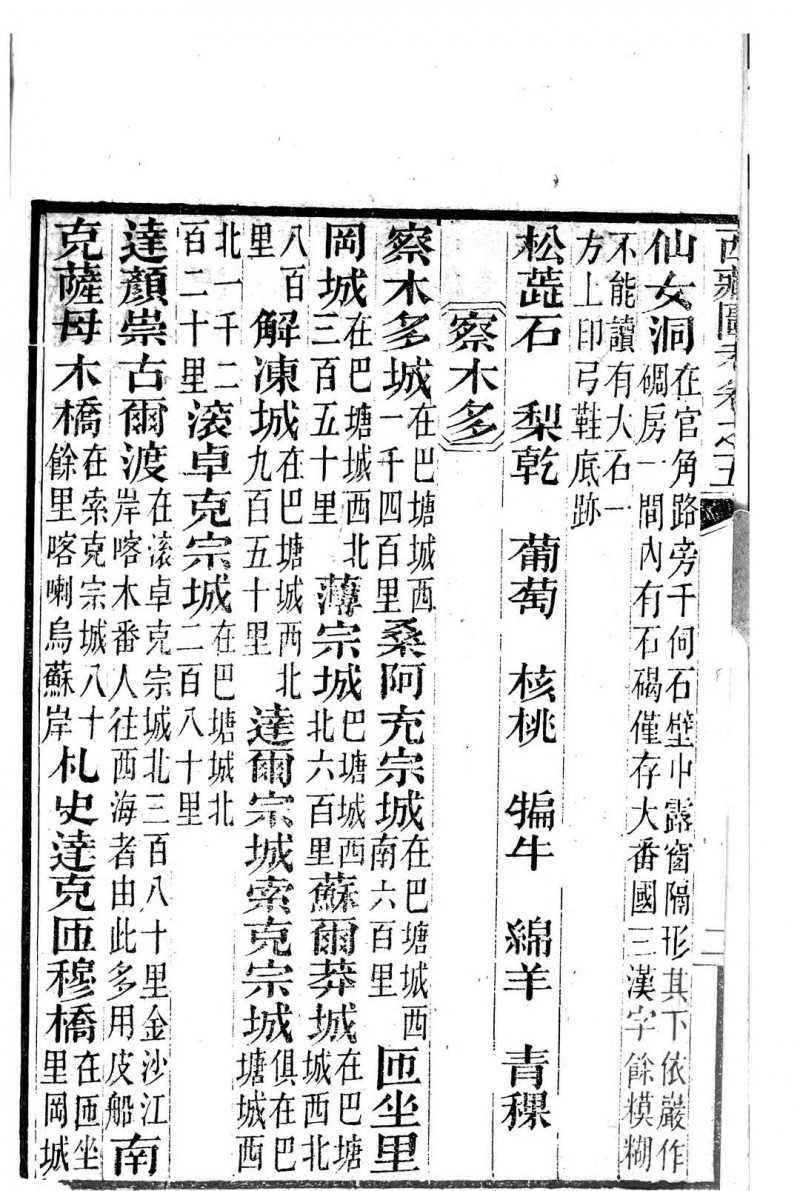 西藏圖考卷之五
二
仙女洞在官角路旁千仞石壁中露窗隔形其下依巖作碉房一間內有石碣僅存大番國三漢字餘模糊
不能讀有大石一方上印弓鞋底跡
松蕋石 梨乾 葡萄 核桃 犏牛 綿羊 青稞
察木多
察木多城在巴塘城西一千四百里桑阿充宗城在巴塘城西南六百里匝坐里
岡城在巴塘城西北三百五十里薄宗城巴塘城西北六百里蘇爾莽城在巴塘城西北
八百里解凍城在巴塘城西北九百五十里達爾宗城索克宗城俱在巴塘城西
北一千二百二十里滾卓克宗城在巴塘城北二百八十里
達顏崇古爾渡在滾卓克宗城北三百八十里金沙江岸喀木番人往西海者由此多用皮船南
克薩母木橋在索克宗城八十餘里喀喇烏蘇岸札史達克匝穆橋在匝坐里岡城